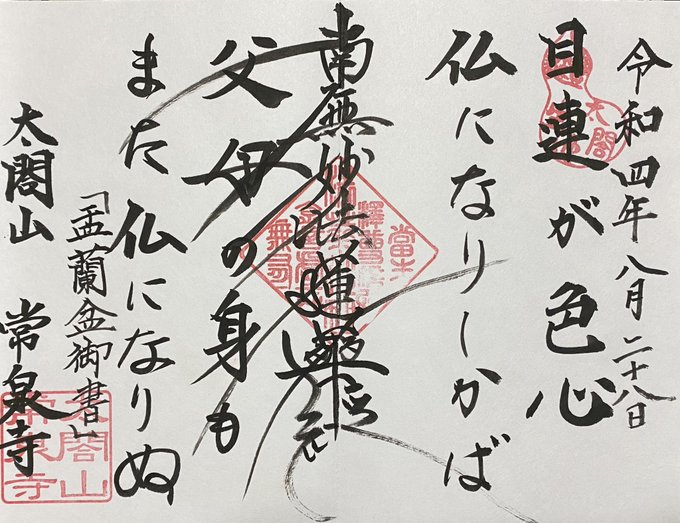 令和四年八月二十八日
目連が色心
仏になりしかば
南無妙法蓮華経
父母の身も
また仏になりぬ
「盂蘭盆御書」
太閤山 常泉寺
太閤
太閤山
常泉寺